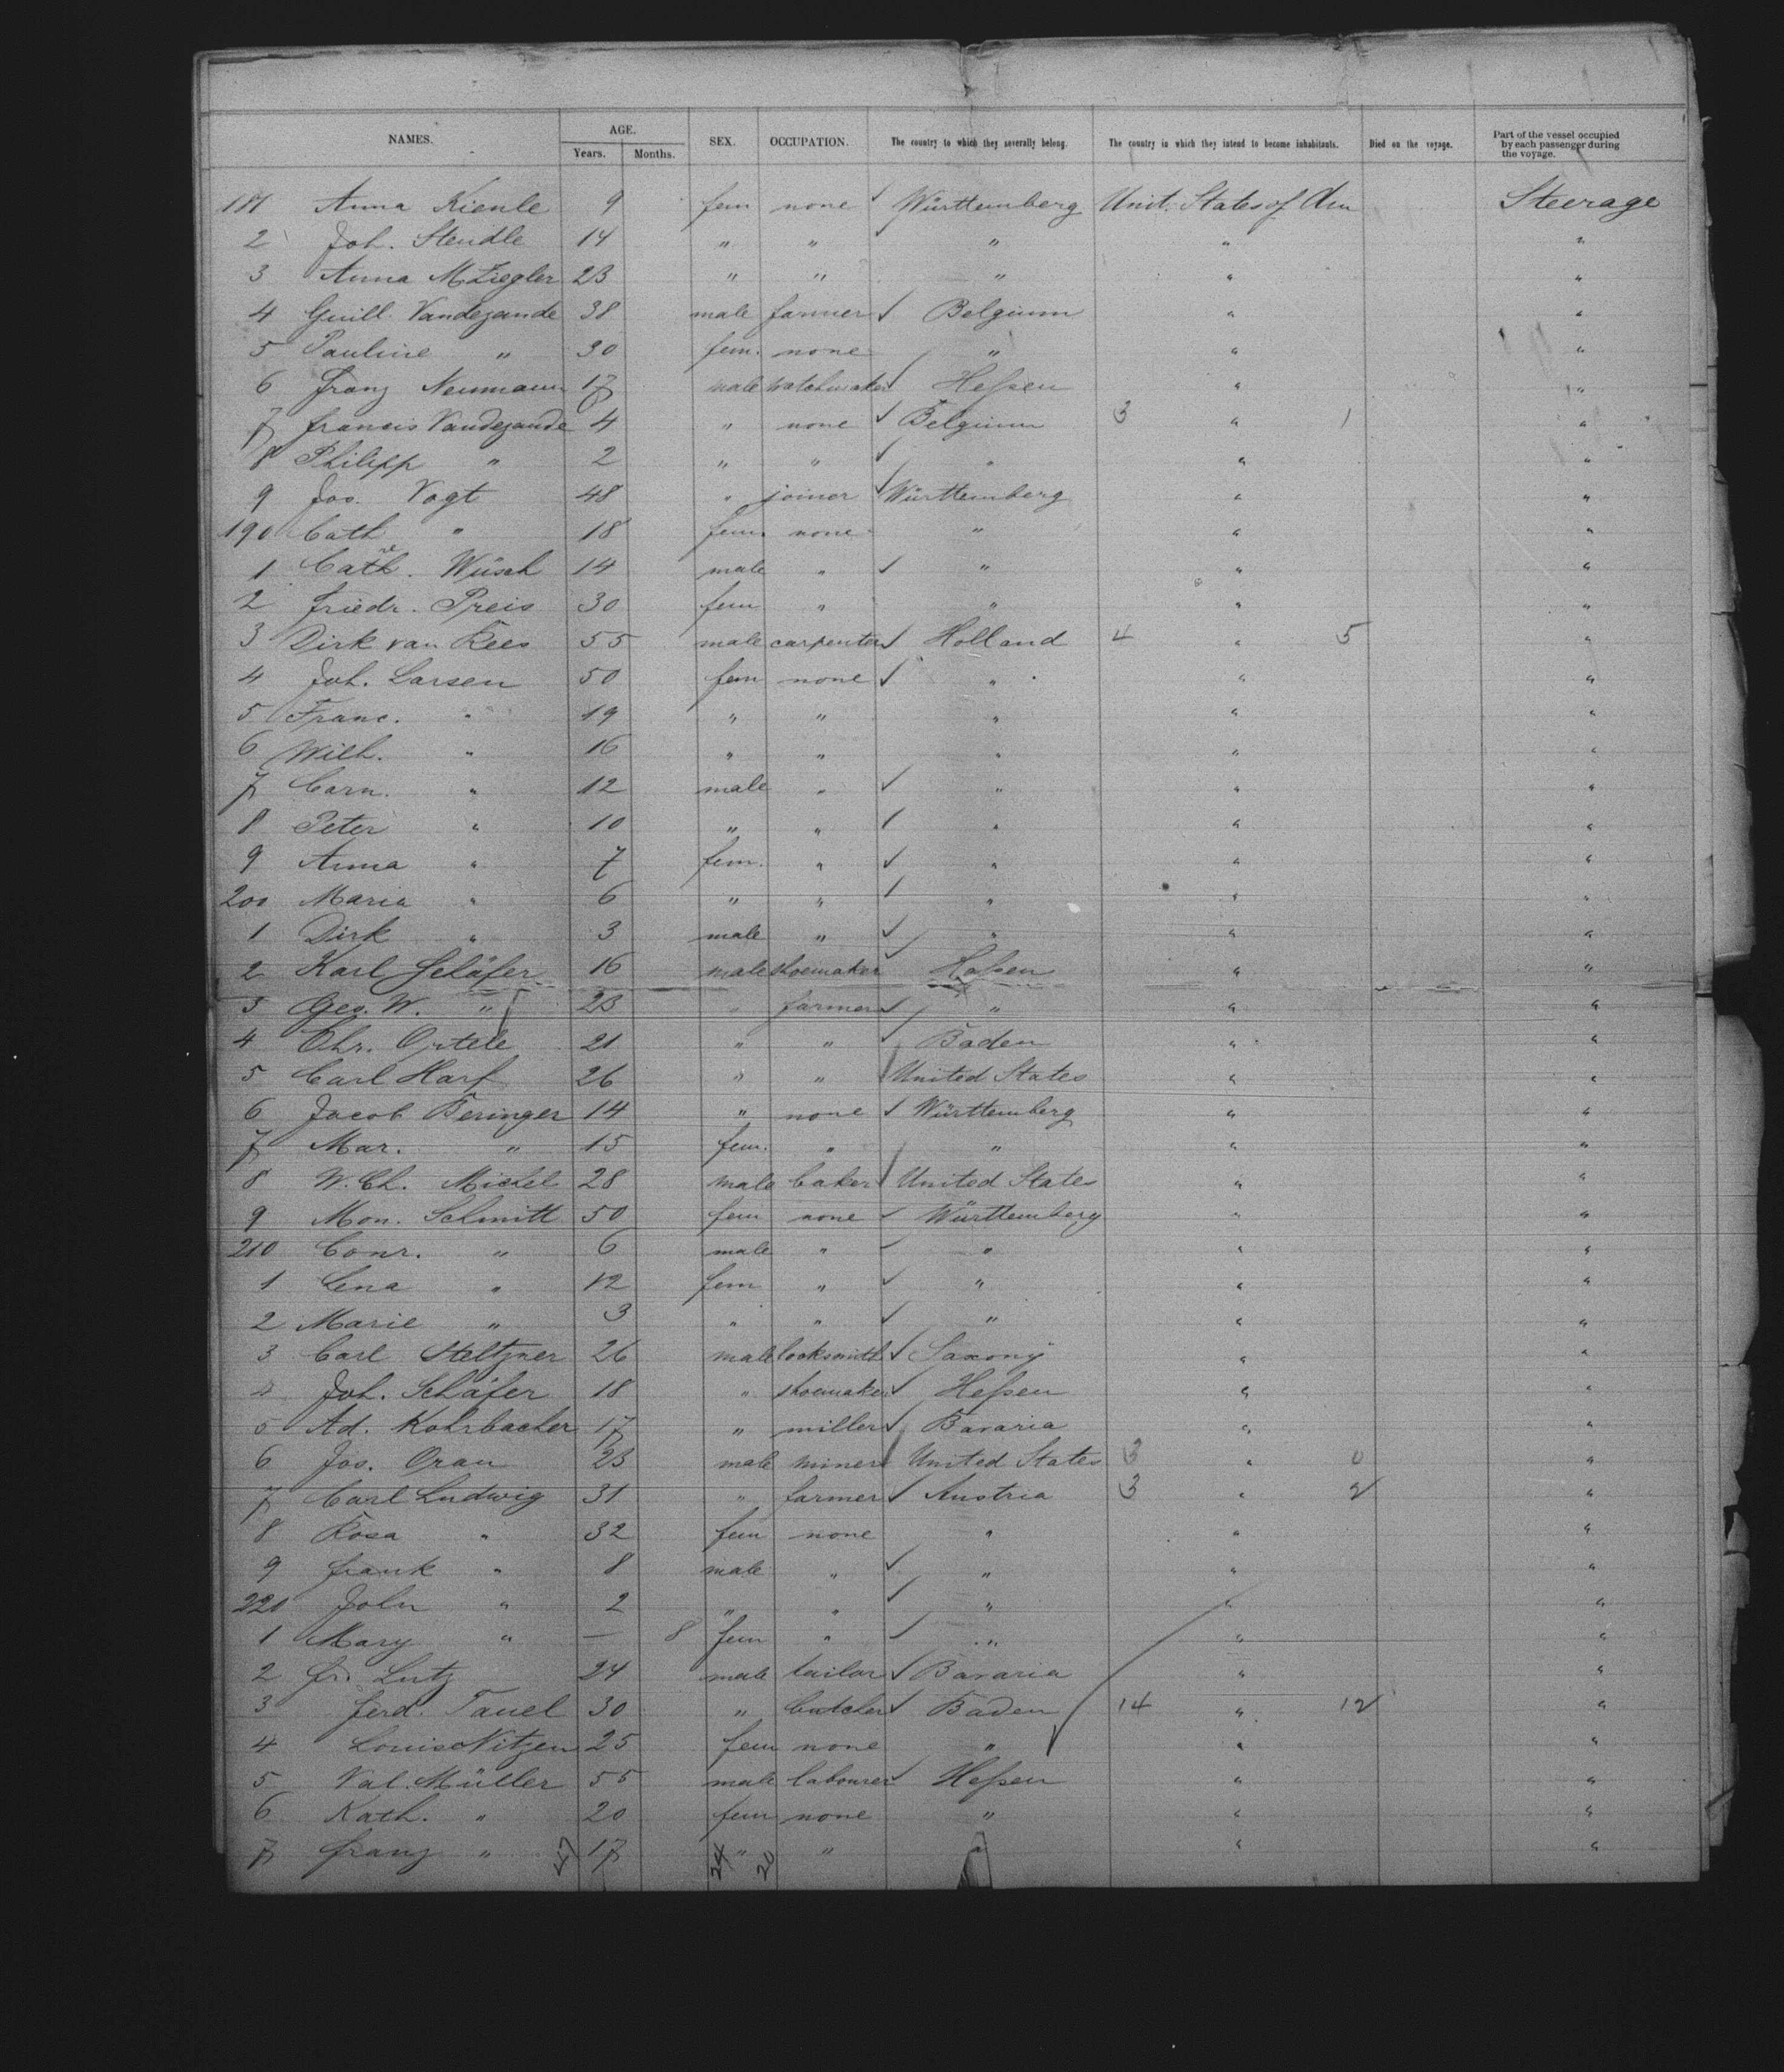 NAMES. AGE. Years. Months. SEX. OCCUPATION. The country to which they severally belong. The country in which they intend to become inhabitants. Died on the voyage. Part of the vessel occupied by each passenger during the voyage.
181 Anna Kienle 9 fem none ✓ Württemberg Unit. States of Am Steerage
2 Joh. Steudle 14 " " ✓ " " "
3 Anna M. Ziegler 23 " " " " "
4 Guill. Vandezande 38 male farmer ✓ Belgium " "
5 Pauline " 30 fem. none " " "
6 Franz Neumann 17 male watchmaker ✓ Heßen " "
7 Francis Vandezande 4 " none ✓ Belgium 3 " 1 "
8 Philipp " 2 " " ✓ " " "
9 Jos. Vogt 48 " joiner ✓ Württemberg " "
190 Cath " 18 fem. none " " "
1 Cath. Wüsch 14 male " ✓ " " "
2 Friedr. Preis 30 fem " " " "
3 Dirk van Rees 55 male carpenter ✓ Holland 4 " 5 "
4 Joh. Larsen 50 fem none ✓ " " "
5 Franc. " 19 " " " " "
6 Wilh. " 16 " " " " "
7 Corn. " 12 male " ✓ " " "
8 Peter " 10 " " ✓ " " "
9 Anna " 7 fem. " ✓ " " "
200 Maria " 6 " " ✓ " " "
1 Dirk " 3 male " ✓ " " "
2 Karl Schäfer 16 male shoemaker ✓ Heßen " "
3 Geo. W. " 23 " farmer ✓ " " "
4 Chr. 21 " " ✓ Baden " "
5 Carl Harf 26 " " United States " "
6 Jacob Beringer 14 " none ✓ Württemberg " "
7 Mar. " 15 fem. " " " "
8 W. Ch. Michel 28 male baker United States " "
9 Mon. Schmitt 50 fem none ✓ Württemberg " "
210 Conr. " 6 male " ✓ " " "
1 Lena " 12 fem " ✓ " " "
2 Marie " 3 " " ✓ " " "
3 Carl Steltzner 26 male locksmith ✓ Saxony " "
4 Joh. Schäfer 18 " shoemaker ✓ Heßen " "
5 Ad. Rohrbacher 17 " miller ✓ Bavaria " "
6 Jos. Oran 23 male miner United States 3 " 0 "
7 Carl Ludwig 31 " farmer ✓ Austria 3 " 2 "
8 Rosa " 32 fem none " " "
9 Frank " 8 male " ✓ " " "
220 John " 2 " " ✓ " " "
1 Mary " — 8 fem " ✓ " " "
2 Fr. Lutz 24 male tailor ✓ Bavaria " "
3 Ferd. Tauel 30 " butcher ✓ Baden 14 " 12 "
4 Louise Nitzen 25 fem none " " "
5 Val. Müller 55 male labourer ✓ Heßen " "
6 Kath. " 20 fem none " " "
7 Franz " 17 " " " " "
47 24 20